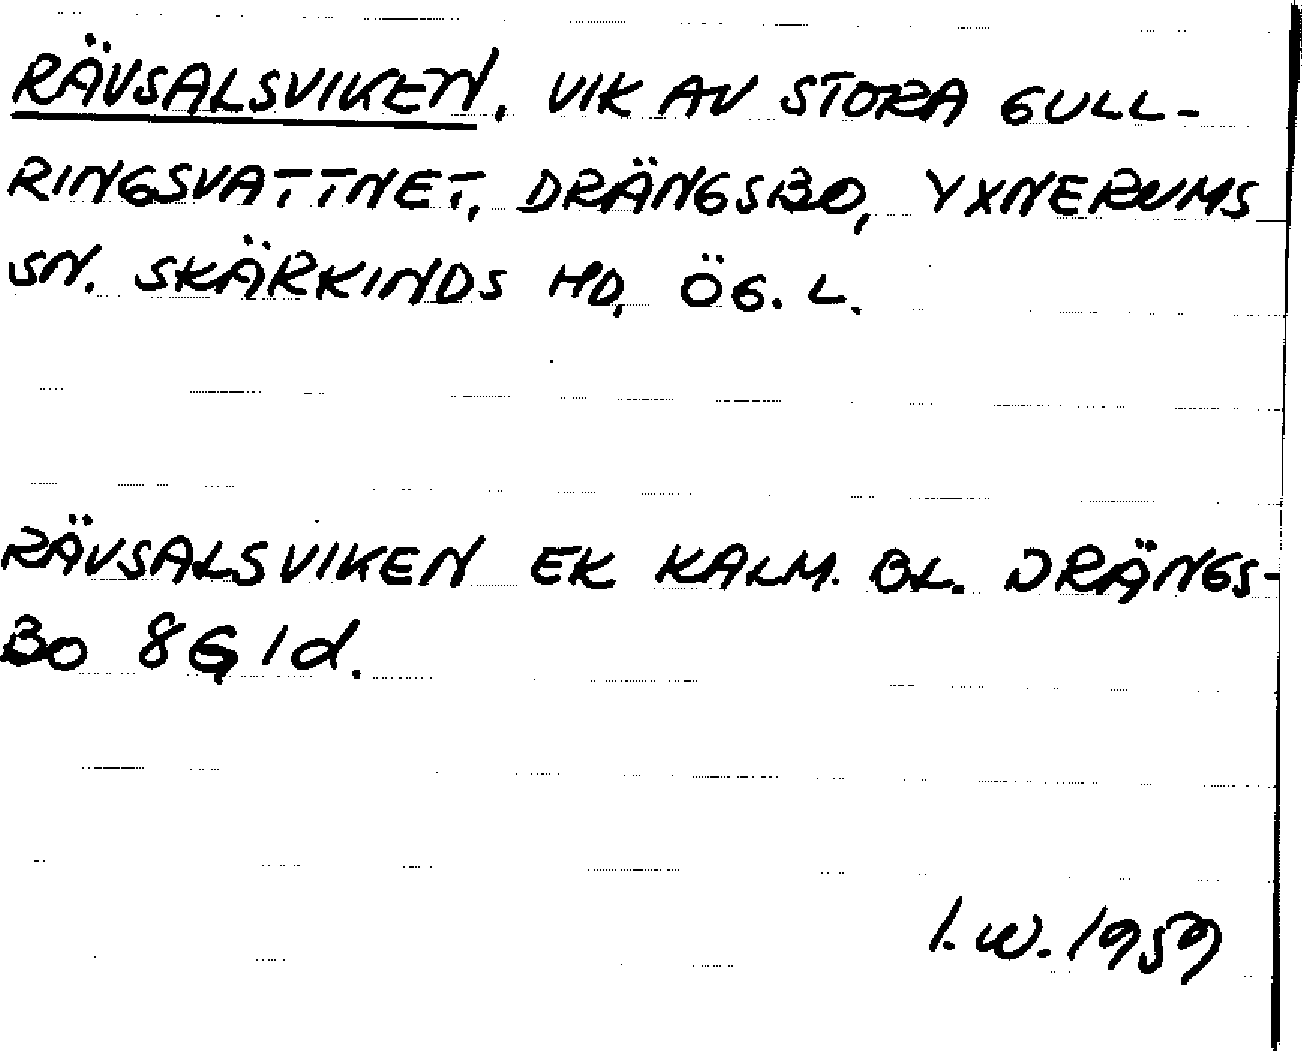 RÄVSALSVIKEN, VIK AV STORA GULL-
RINGSVATTNET, DRÄNGSBO, YXNERUMS
SN. SKÄRKINDS HD, ÖG. L.
RÄVSALSVIKEN EK KALM. BL. DRÄNGS-
BO 8G 1d.
I. W. 1959